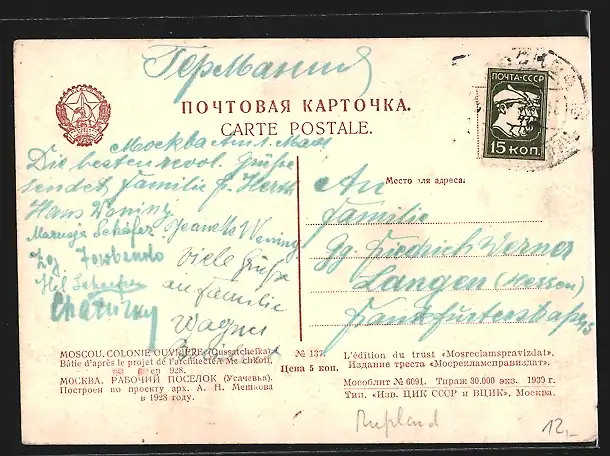 Германия
ПОЧТОВАЯ КАРТОЧКА.
CARTE POSTALE.
ПОЧТА·СССР
15 КОП.
Москва am 1. Mai
Die besten revol. Grüße
sendet, Familie
Hans Wening
Schäfer. Jeanette Wening
viele Grüße
an Familie
Wagner
Место для адреса.
An
Familie
Gg. Friedrich Werner
Langen (Hessen)
Frankfurterstraße
MOSCOU. COLONIE OUVRIÈRE (Oussatcheffka).
Bâtie d'après le projet de l'architecte Mechkoff,
en 928.
МОСКВА. РАБОЧИЙ ПОСЕЛОК (Усачевка).
Построен по проекту арх. А. И. Мешкова
в 1928 году.
№ 137.
Цена 5 коп.
L'édition du trust «Mosreclamspravizdat».
Издание треста «Мосрекламправиздат».
Мособлит № 6091. Тираж 30.000 экз. 1930 г.
Тип. «Изв. ЦИК СССР и ВЦИК», Москва.
Rußland
12,-